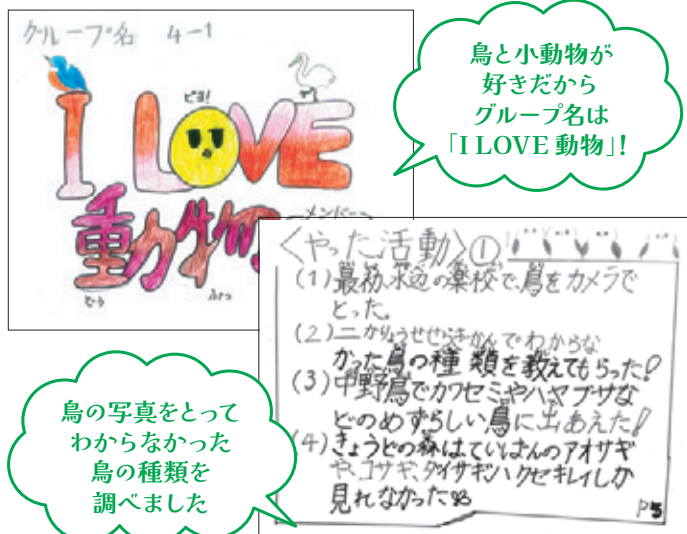 グループ名 4-1
I LOVE
ピヨ!
動物
どう ぶつ
メンバー
鳥と小動物が
好きだから
グループ名は
「I LOVE 動物」!
<やった活動>①
(1)最初、水辺の楽校で、鳥をカメラで
とった。
(2)二かりょうせせらぎかんでわからな
かった鳥の種類を教えてもらった!
(3)中野島でカワセミやハヤブサな
どのめずらしい鳥に出あえた!
(4)きょうどの森はていばんのアオサギ
や、コサギ、ダイサギ、ハクセキレイしか
見れなかった
P5
鳥の写真をとって
わからなかった
鳥の種類を
調べました